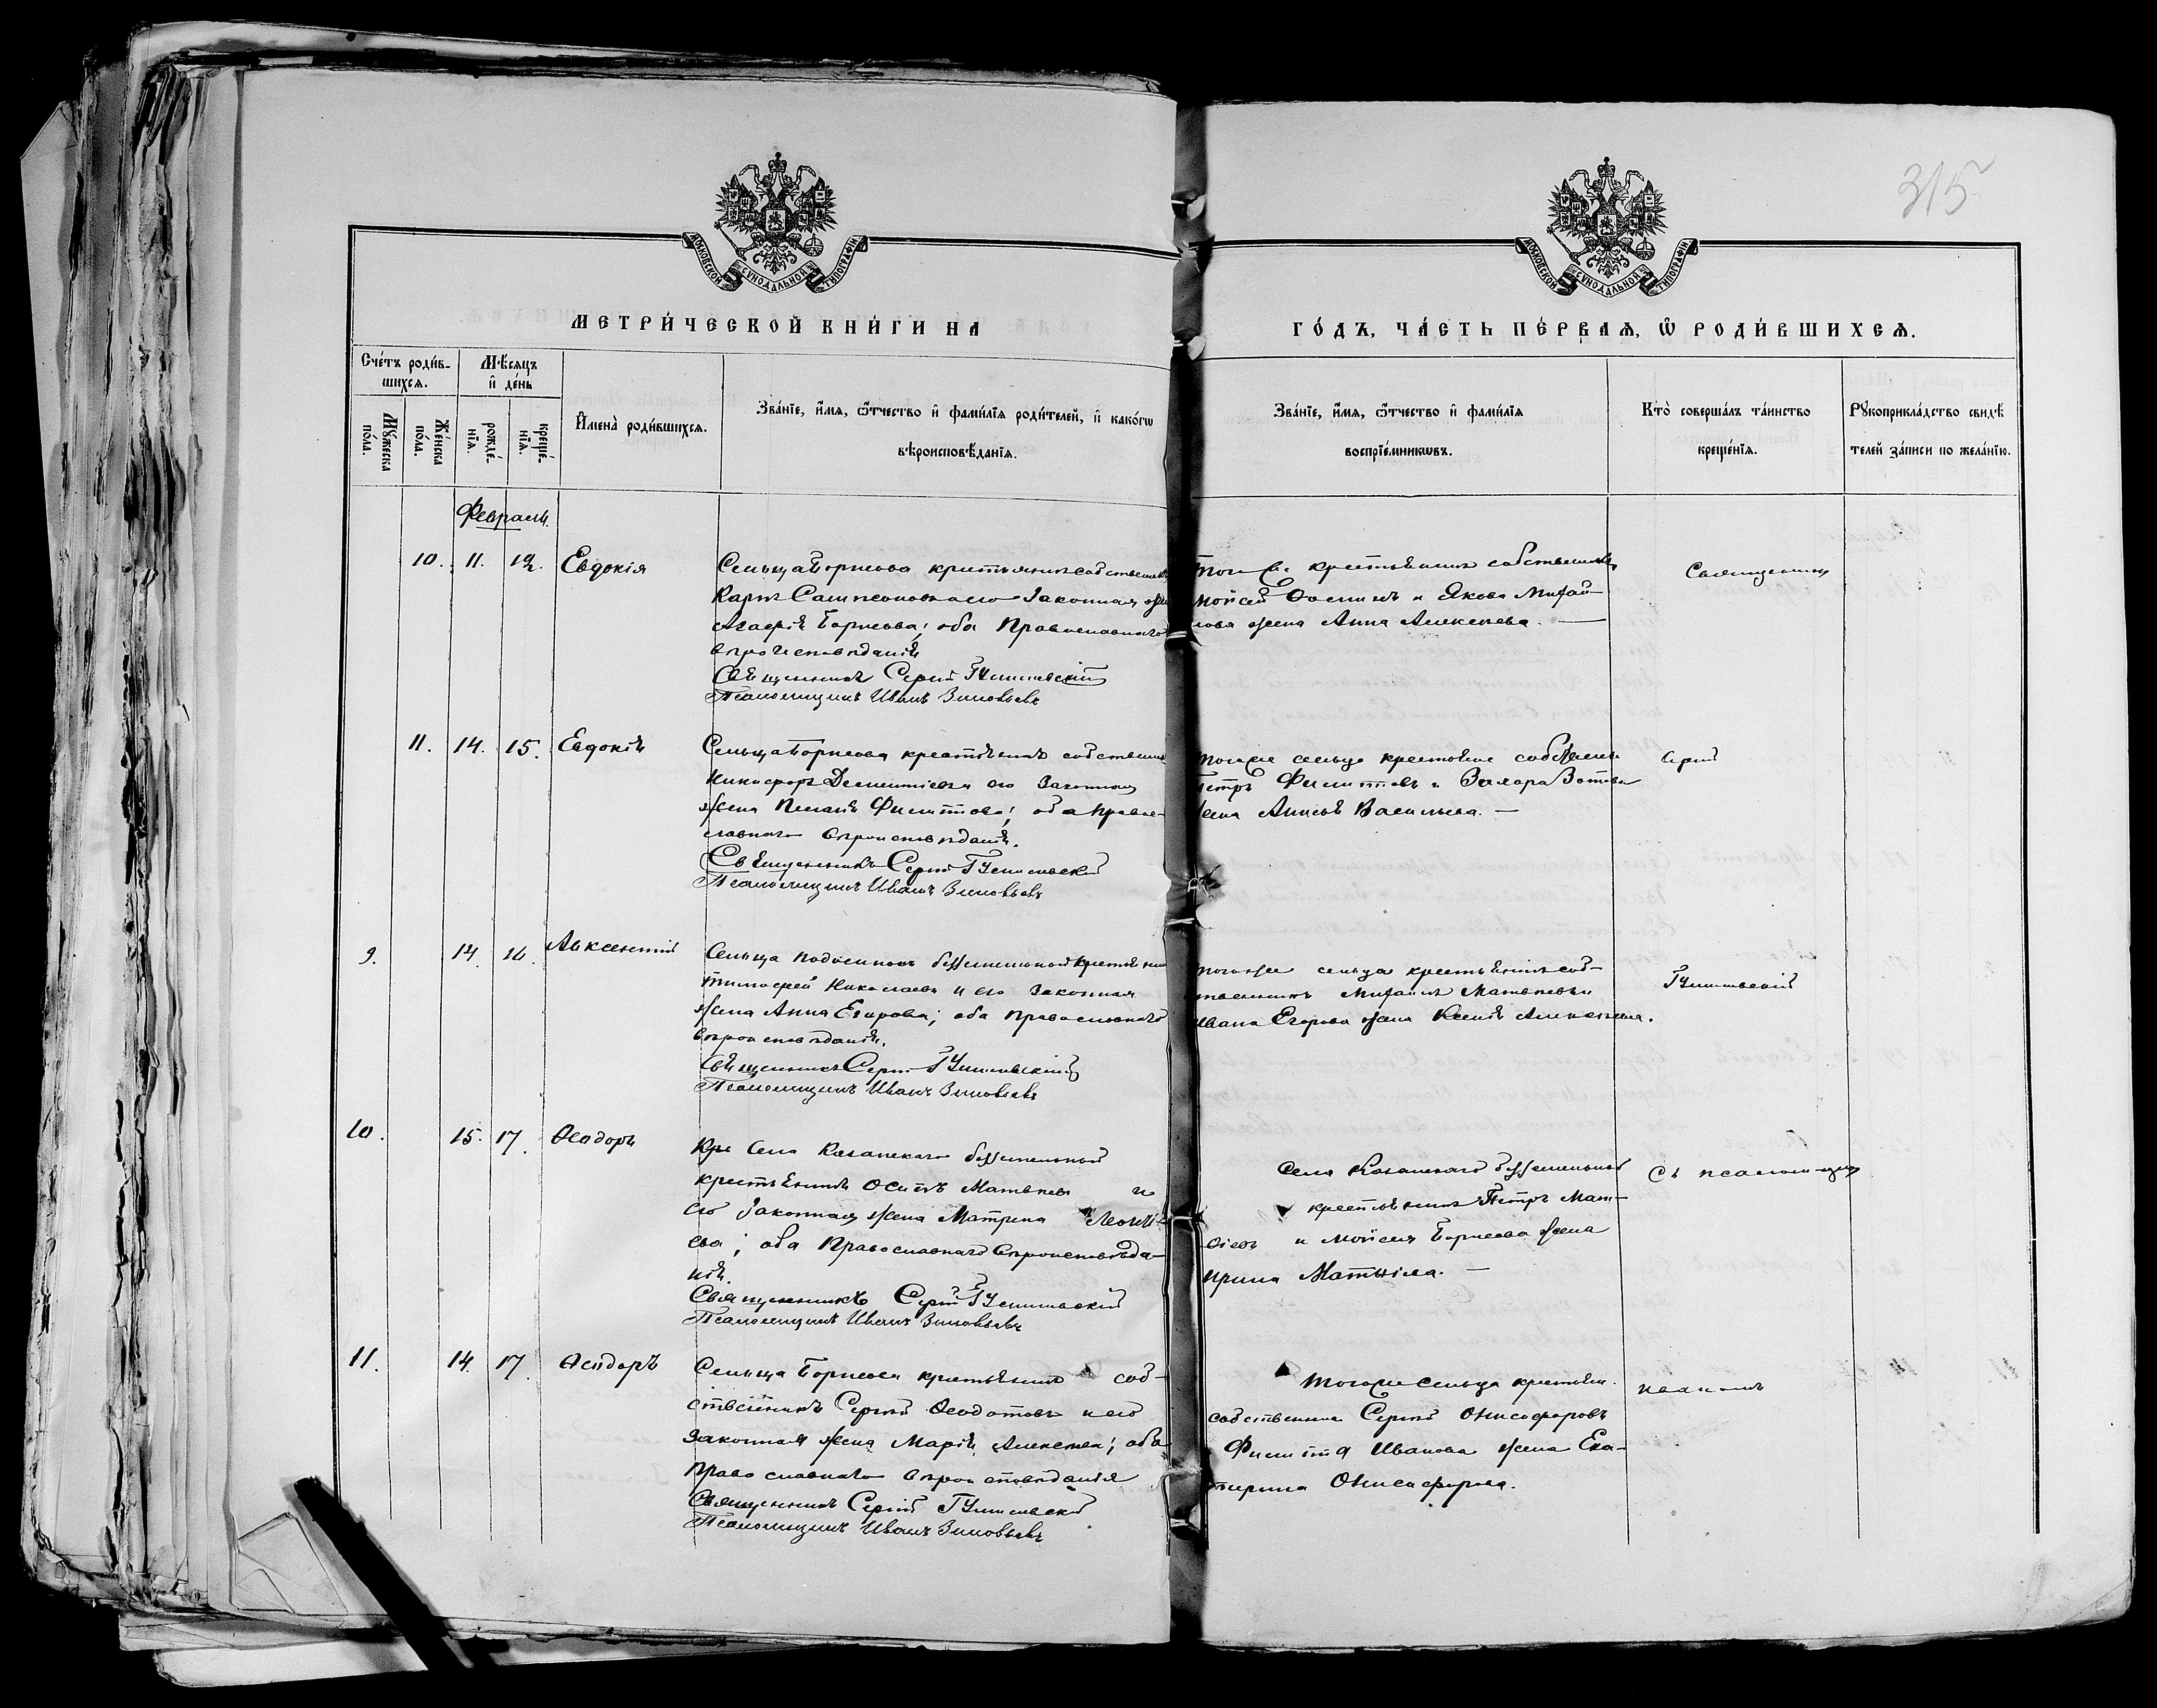 315
МОСКОВСКОЙ СѴНОДАЛЬНОЙ ТИПОГРАФІИ
МОСКОВСКОЙ СѴНОДАЛЬНОЙ ТИПОГРАФІИ
МЕТРИ́ЧЕСКОЙ КНИ́ГИ НА
ГО́ДЪ, ЧА́СТЬ ПЕ́РВАЯ, Ѿ РОДИ́ВШИХСЯ.
Сче́тъ роди́в-
шихся.
Мѣ́сяцъ
и҆ де́нь
Мꙋ́жеска
по́ла.
Же́нска
по́ла.
рожде́-
нїя.
креще́-
нїя.
И҆мена̀ роди́вшихся.
Зва́нїе, и҆́мя, ѻ҆́тчество и҆ фами́лїя роди́телей, и҆ како́гѡ
вѣроисповѣ́данїя.
Зва́нїе, и҆́мя, ѻ҆́тчество и҆ фами́лїя
воспрїе́мникѡвъ.
Кто̀ соверша́лъ та́инство
креще́нїя.
Рꙋкоприкла́дство свидѣ́
телей за́писи по жела́нїю.
Февраль.
10. 11. 12. Евдокія
Сельца Борисова крестьянинъ собственникъ
Карпъ Сампсоновъ и его Законная
Агафія Борисова; оба Православнаго
вѣроисповѣданія
Священникъ Сергій
Псаломщикъ Иванъ Зиновьевъ
крестьянинъ собственникъ
Мойсей и Якова Михай-
лова жена Анна Алексѣева. —
Священникъ
11. 14. 15. Евдокія
Сельца Борисова крестьянинъ собственникъ
Никифоръ Дементіевъ и его Законная
жена Пелагія Филиппова; оба Право-
славнаго вѣроисповѣданія.
Священникъ Сергій
Псаломщикъ Иванъ Зиновьевъ
того же сельца крестьянинъ
Петръ Филипповъ и Захара Зотова
жена Анисія Васильева. —
Сергій
9. 14. 16. Авксентій
Сельца безземельный крестьянинъ
Тимофей Николаевъ и его Законная
жена Анна Егорова; оба Православнаго
вѣроисповѣданія.
Священникъ Сергій
Псаломщикъ Иванъ Зиновьевъ
того же сельца крестьянинъ соб-
ственникъ Михаилъ Матвѣевъ и
Ивана Егорова жена Ксенія Алексѣева.
10. 15. 17. Ѳеодоръ
Кре Села Казанскаго безземельный
крестьянинъ Осипъ Матвѣевъ и
его Законная жена Матрена Леонтіе-
ва; оба Православнаго вѣроисповѣда-
нія.
Священникъ Сергій
Псаломщикъ Иванъ Зиновьевъ
Села Казанскаго безземельный
крестьянинъ Петръ Мат-
ѳіевъ и Мойсея Борисова жена
Ирина Матвѣева. —
Съ псаломщикомъ
11. 14. 17. Ѳеодоръ
Сельца Борисова крестьянинъ соб-
ственникъ Сергій Ѳеодотовъ и его
Законная жена Марія Алексѣева; оба
Православнаго вѣроисповѣданія
Священникъ Сергій
Псаломщикъ Иванъ Зиновьевъ
того же сельца крестьян.
собственникъ Сергій Онисифоровъ
Филиппа Иванова жена Ека-
терина Онисифорова.